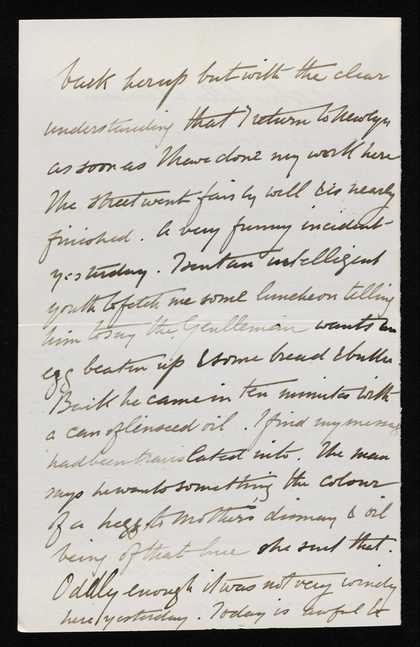 back her up but with the clear
understanding that I return to Newlyn
as soon as I have done my work here
The street went fairly well & is nearly
finished. A very funny incident
yesterday. I sent an intelligent
youth to fetch me some luncheon telling
him to say the Gentleman wants an
egg beaten up & some bread & butter
Back he came in ten minutes with
a can of linseed oil. I find my message
had been translated into. The man
says he wants something the colour
of a hegg to Mothers dismay & oil
being of that hue she sent that.
Oddly enough it was not very windy
here yesterday. Today is awful &